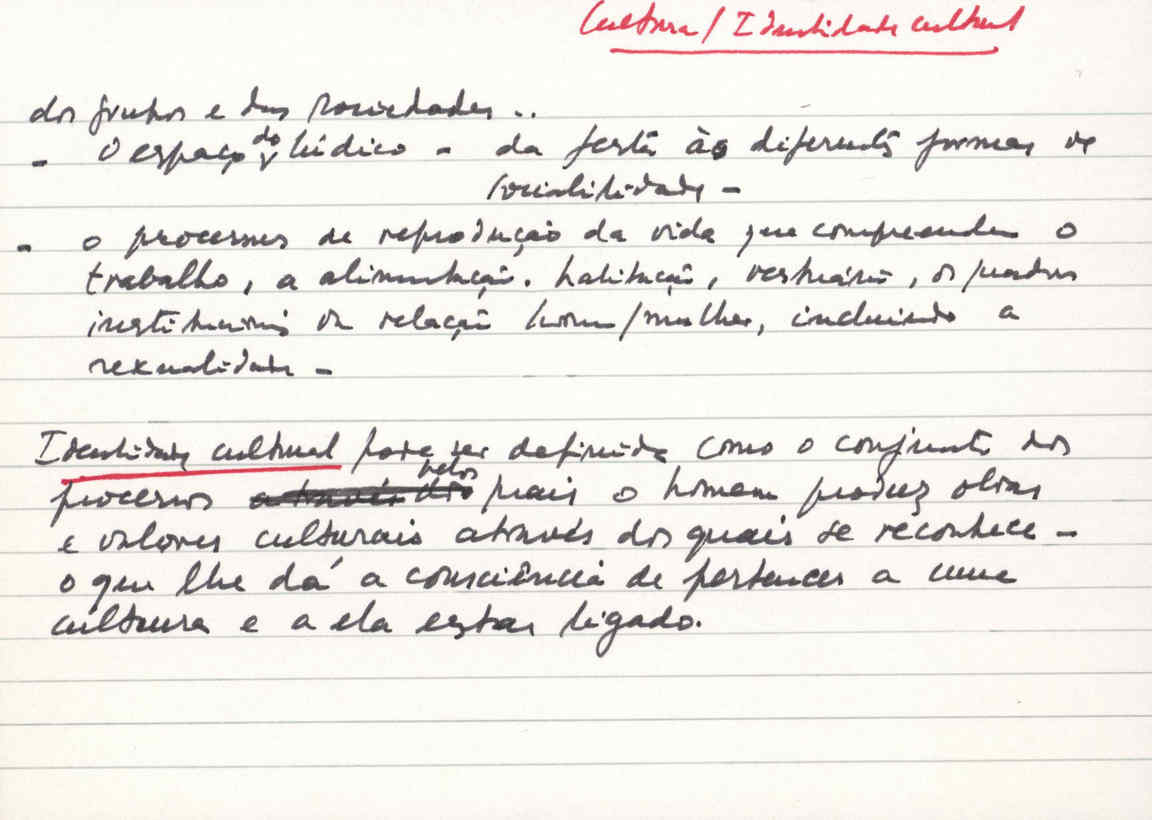 Cultura / Identidade cultural
dos grupos e das sociedades..
- O espaço do lúdico - da festa às diferentes formas de
sociabilidade -
- o processus de reprodução da vida que compreende o
trabalho, a alimentação, habitação, vestuário, os quadros
institucionais da relação homem/mulher, incluindo a
sexualidade -
Identidade cultural pode ser definida como o conjunto dos
processos através dos pelos quais o homem produz obras
e valores culturais através dos quais se reconhece -
o que lhe dá a consciência de pertencer a uma
cultura e a ela estar ligado.